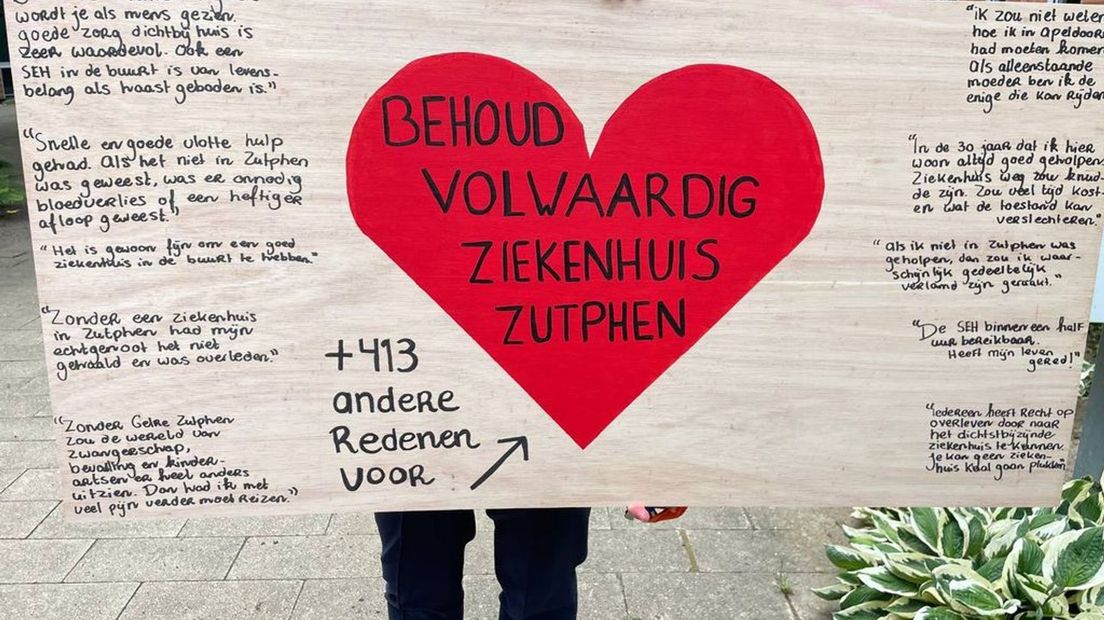 wordt je als mens gezien.
goede zorg dichtbij huis is
zeer waardevol. Ook een
SEH in de buurt is van levens-
belang als haast geboden is."
"Snelle en goede vlotte hulp
gehad. Als het niet in Zutphen
was geweest, was er onnodig
bloedverlies of een heftiger
afloop geweest."
"Het is gewoon fijn om een goed
ziekenhuis in de buurt te hebben."
"Zonder een ziekenhuis
in Zutphen had mijn
echtgenoot het niet
gehaald en was overleden."
"Zonder Gelre Zutphen
zou de wereld van
zwangerschap,
bevalling en kinder-
artsen er heel anders
uitzien. Dan had ik met
veel pijn verder moet Reizen."
BEHOUD
VOLWAARDIG
ZIEKENHUIS
ZUTPHEN
+413
andere
Redenen
voor
"ik zou niet weten
hoe ik in Apeldoorn
had moeten komen
Als alleenstaande
moeder ben ik de
enige die kan Rijden
"In de 30 jaar dat ik hier
woon altijd goed geholpen.
Ziekenhuis weg zou knud-
de zijn. Zou veel tijd kost-
en wat de toestand kan
verslechteren."
"als ik niet in Zutphen was
geholpen, dan zou ik waar-
schijnlijk gedeeltelijk
verlamd zijn geraakt."
"De SEH binnen een half
uur bereikbaar.
Heeft mijn leven
gered!"
"iedereen heeft Recht op
overleven door naar
het dichtstbijzijnde
ziekenhuis te kunnen.
je kan geen zieken-
huis kaal gaan plukken"